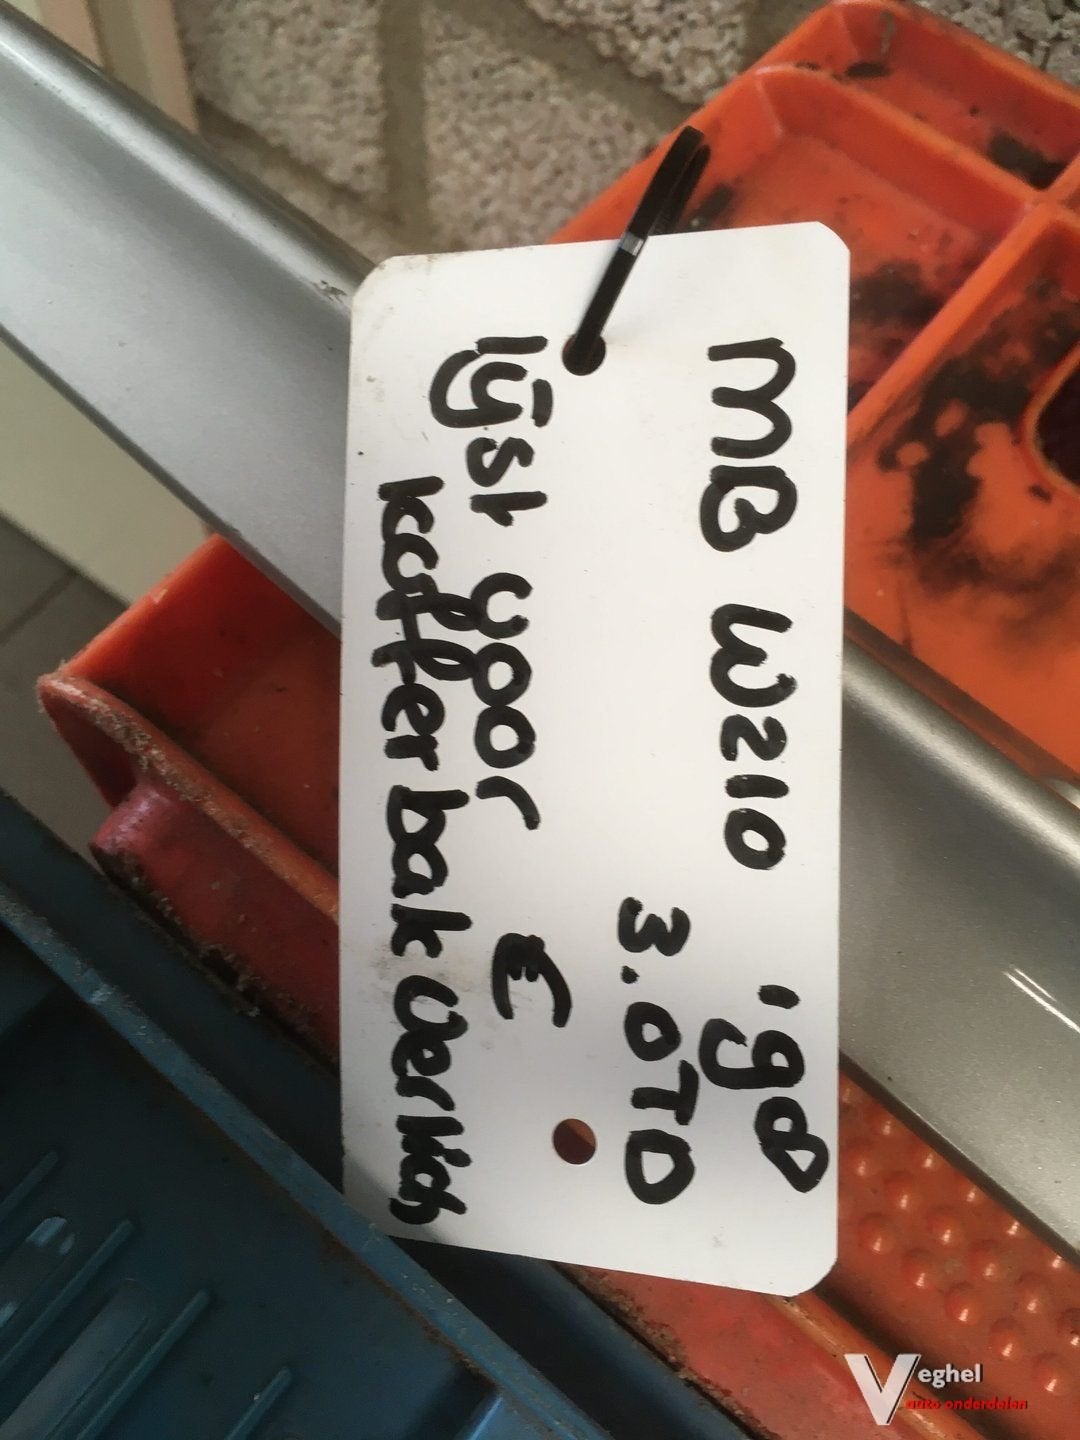 MB W210 '98
3.0TD
lijst voor €
kofferbakverlich
Veghel
auto onderdelen